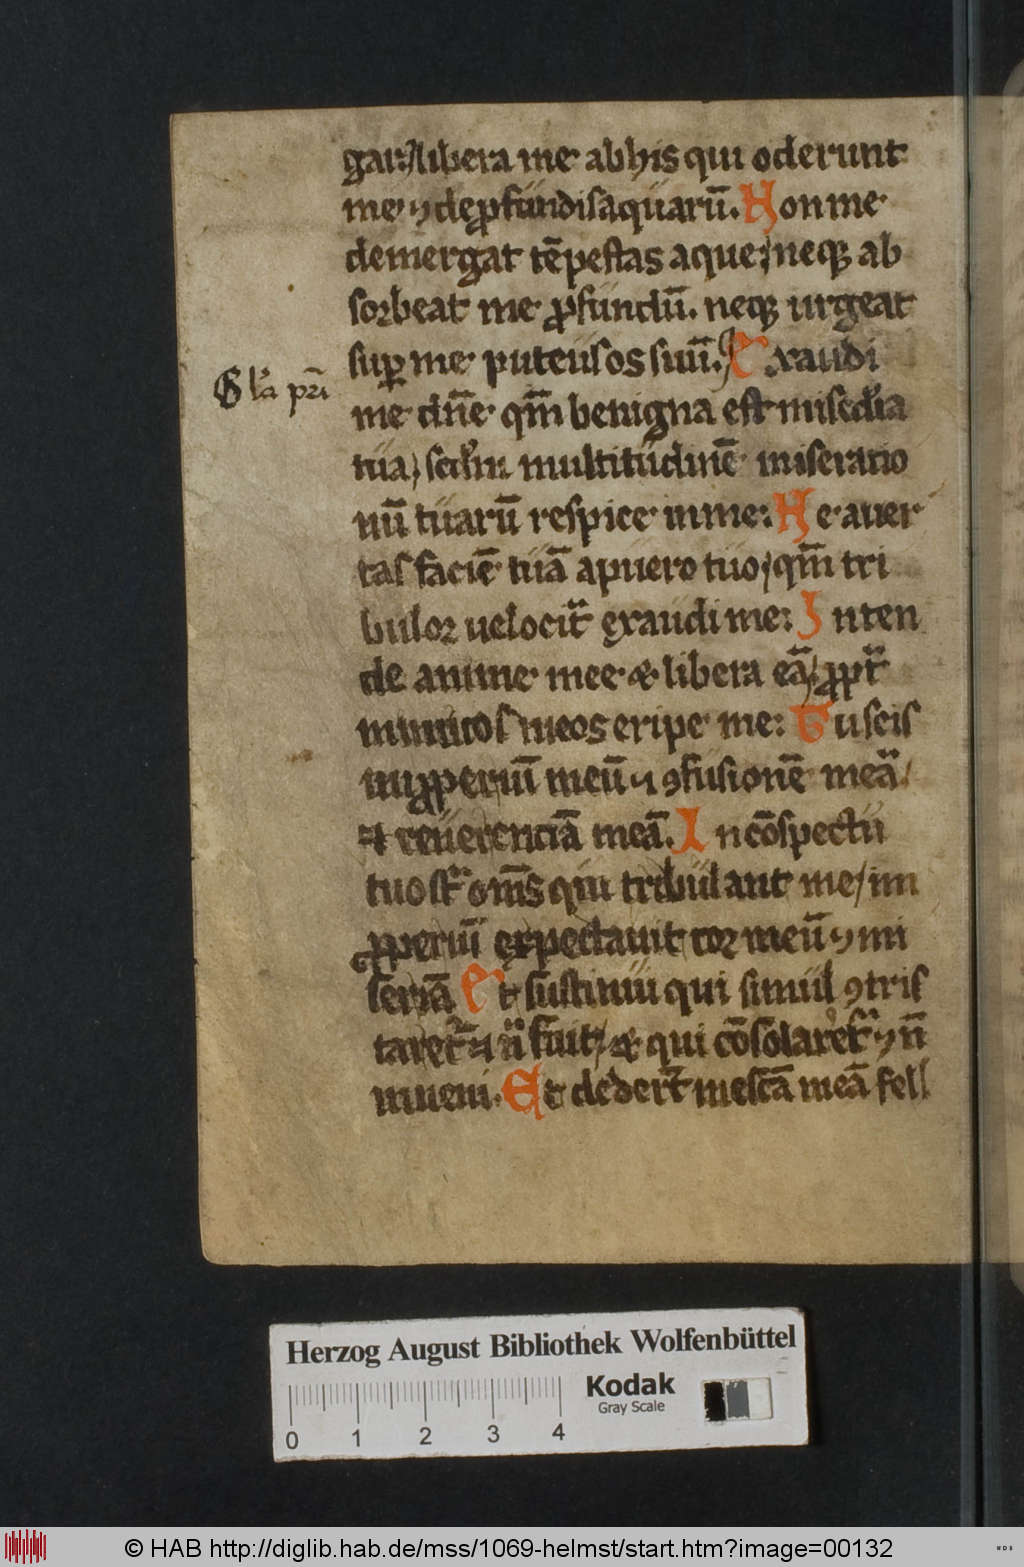 gar / libera me ab his qui oderunt
me ⁊ de ꝓfundis aquarū. Non me
demergat tēpestas aque / neqꝫ ab
sorbeat me ꝓfundū. neqꝫ urgeat
suꝑ me puteus os suū. Exaudi
Gl'a pri
me dn̄e qm̄ benigna est misc̄dia
tua / scd'm multitudinē miseratio
nū tuarū respice in me: Ne auer
tas faciē tuā a puero tuo / qm̄ tri
bulor uelocit̄ exaudi me: Inten
de anime mee & libera eā / ꝓpt̄
inimicos meos eripe me: Tu scis
inꝓperiū meū ⁊ ꝯfusionē meā /
⁊ reuerenciā meā. In cōspectu
tuo st̄ om̄s qui tribulant me / im
ꝓperiū expectauit cor meū ⁊ mi
seriā Et sustinui qui simul ꝯtris
taret̄ ⁊ n̄ fuit / & qui cōsolaret̄ ⁊ n̄
inueni. Et dedert̄ in escā meā fell
Herzog August Bibliothek Wolfenbüttel
Kodak
Gray Scale
0 1 2 3 4
© HAB http://diglib.hab.de/mss/1069-helmst/start.htm?image=00132